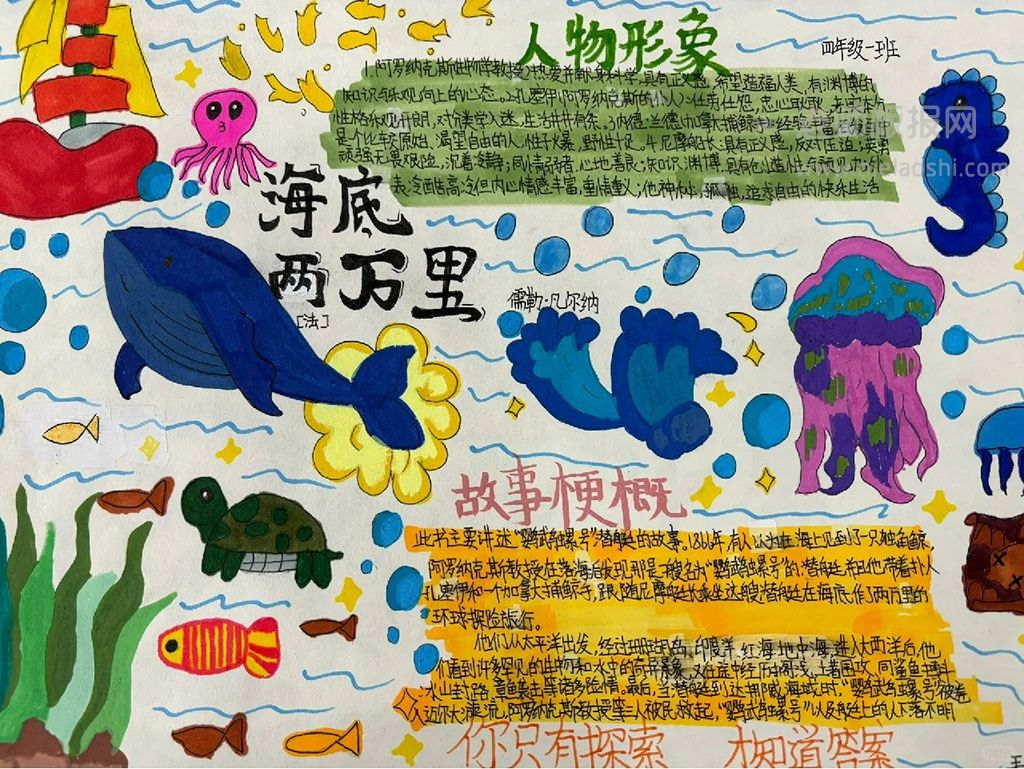 人物形象
四年级一班
1.阿罗纳克斯(生物学教授)热爱并献身科学,具有正义感,希望造福人类,有渊博的
知识与乐观向上的心态。2.孔塞伊(阿罗纳克斯的仆人)任劳任怨,忠心耿耿,
性格乐观开朗,对分类学入迷,生活井井有条。3.内德·兰德(加拿大捕鲸手)
是个比较原始、渴望自由的人,性子火暴,野性十足。4.尼摩船长:具有正义感,反对压迫;英勇
顽强,无畏艰险,沉着冷静,同情弱者,心地善良;知识渊博,具有创造性
表冷酷高冷但内心情感丰富,重情重义;他神秘、孤独,追求自由的快乐生活
海底
两万里
[法]
儒勒·凡尔纳
故事梗概
此书主要讲述“鹦鹉螺号”潜艇的故事。1866年,有人以为在海上见到了一只独角鲸,
阿罗纳克斯教授在落海后发现那是一艘名为“鹦鹉螺号”的潜艇,并且他带着仆人
孔塞伊和一个加拿大捕鲸手,跟随尼摩艇长乘坐这艘潜艇在海底作了两万里的
环球探险旅行。
他们从太平洋出发,经过珊瑚岛、印度洋、红海、地中海,进入大西洋后,他
们看到许多罕见的生物和水中的奇异景象,又在途中经历搁浅、土著围攻、同鲨鱼搏斗
、冰山封路、章鱼袭击等诸多险情。最后,当潜艇到达挪威海域时,“鹦鹉螺号”被卷
入迈尔大漩流,阿罗纳克斯教授等三人被民救起,“鹦鹉螺号”以及艇上的人下落不明
你只有探索 才知道答案